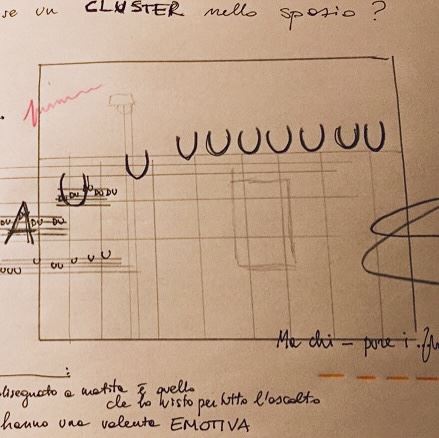 se un CLUSTER nello spazio?
U U U U U U U U
U DU DU DU
DU A DU DU
UUU U UU U U U
Ma chi – pure i
disegnato a matita è quello
che ho visto per tutto l'ascolto
hanno una valenza EMOTIVA